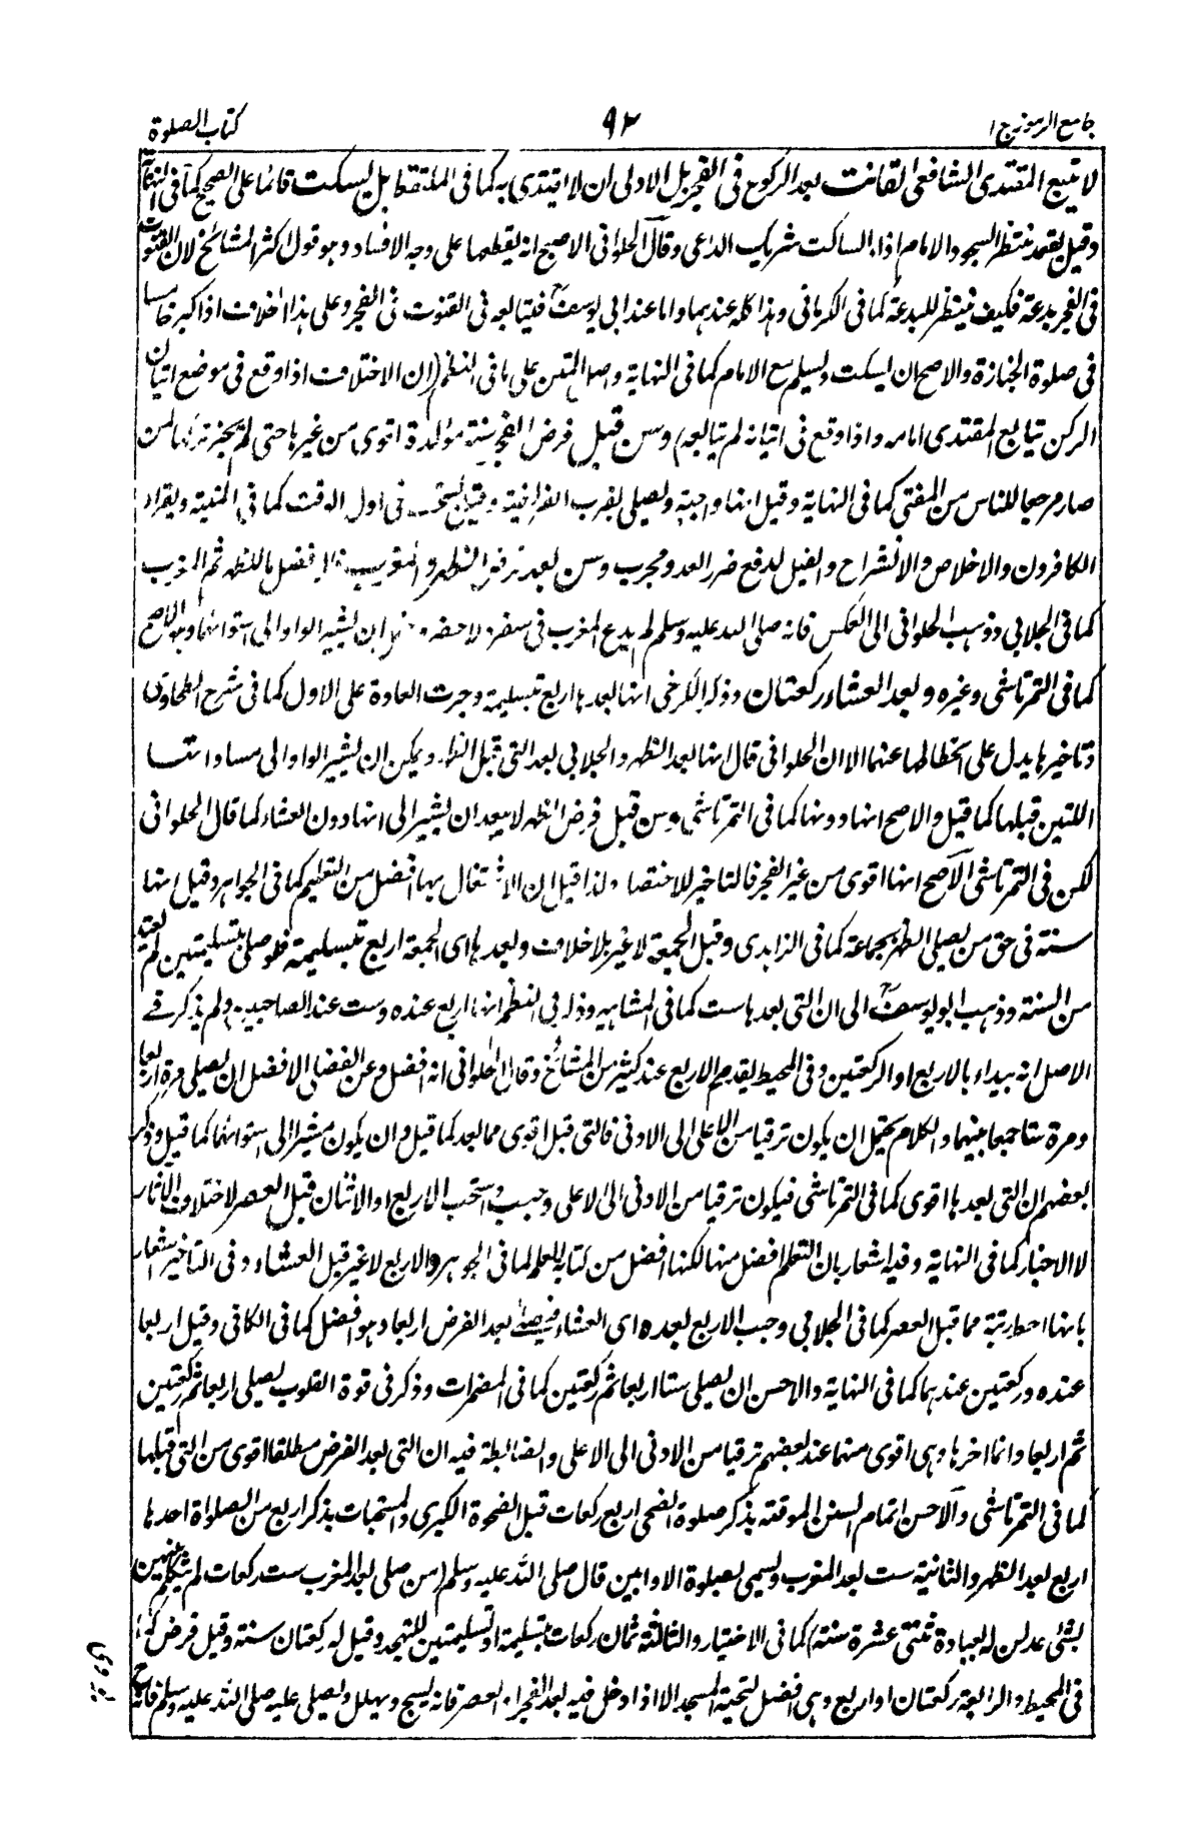 جامع الرموز ج ۱
۹۲
كتاب الصلوة
لا يتبع المقتدى الشافعى القانت بعد الركوع فى الفجر بل الاولى ان لا اقتدى به كما فى الملتقط بل يسكت قائما على الصحيح كما فى النهاية
وقيل يقعد منتظر السجود الامام اذا الساكت شريك الداعى وقال الحلوانى الاصح انه يقطعها على وجه الافساد وهو قول اكثر المشائخ لان القنوت
فى الفجر بدعة فكيف ينتظر للبدعة كما فى الكرمانى وهذا كله عندهما واما عند ابى يوسف فيتابعه فى القنوت فى الفجر وعلى هذا الخلاف اذا كبر خامسا
فى صلوة الجنازة والاصح ان يسكت ويسلم مع الامام كما فى النهاية واصل المتن على ما فى النظم (ان الاختلاف اذا وقع فى موضع اتيان
الركن تيابع المقتدى امامه واذا وقع فى اتيانه لم يتابعه) وسن قبل فرض الفجر سنة مؤكدة اقوى من غيرها حتى لم يجز تركها لمن
صار مرجعا للناس من المفتى كما فى النهاية وقيل انها واجبة ويصلى بقرب الفريضة وقيل يستحب فى اول الوقت كما فى المنية ويقراء
الكافرون والاخلاص والانشراح والفيل لدفع ضرر العدو مجرب وسن بعد فرض الظهر والمغرب فالافضل ما للظهر ثم المغرب
كما فى الجلابى وذهب الحلوانى الى العكس فانه صلى الله عليه وسلم لم يدع المغرب فى سفر ولا حضر ان يشير الواو الى استوائهما وهو الاصح
كما فى التمرتاشى وغيره وبعد العشاء ركعتان وذكر الكرخى انها بعدها اربع بتسليمة وجرت العادة على الاول كما فى شرح الطحاوى
وتاخيرها يدل على انحطاطها عنهما الا ان الحلوانى قال انها بعد الظهر والجلابى بعد التى قبل الظهر ويمكن ان يشير الواو الى مساواتها
اللتين قبلها كما قيل والاصح انها دونها كما فى التمرتاشى وسن قبل فرض الظهر لا يبعد ان يشير الى انها دون العشاء كما قال الحلوانى
لكن فى التمرتاشى الاصح انها اقوى من غير الفجر فالتاخير للاختصار ولذا قيل ان الاشتغال بها افضل من التعليم كما فى الجواهر وقيل انها
سنة فى حق من يصلى الظهر بجماعة كما فى الزاهدى وقبل الجمعة لا غير بلا خلاف وبعدها اى الجمعة اربع بتسليمة فلو صلى بتسليمتين لم تعد
من السنة وذهب ابو يوسف الى ان التى بعدها ست كما فى المشاهير وذكر فى النظم انها اربع عنده وست عند الصاحبين ولم يذكر فى
الاصل انه يبداء بالاربع او الركعتين وفى المحيط يقدم الاربع عند كثير من المشائخ وقال الحلوانى انه افضل وعن الفضلى الافضل ان يصلى مرة اربعا
ومرة ستا جمعا بينهما والكلام يحتمل ان يكون ترقيا من الاعلى الى الادنى فالتى قبل اقوى مما بعد كما قيل وان يكون مشيرا الى استوائهما كما قيل وذكر
بعضهم ان التى بعدها اقوى كما فى التمرتاشى فيكون ترقيا من الادنى الى الاعلى وحبب اى استحب الاربع او الاثنان قبل العصر لاختلاف الآثار
لا الاخبار كما فى النهاية وفيه اشعار بان التعلم افضل منها لكنها افضل من كتابة العلم كما فى الجواهر والاربع لا غير قبل العشاء وفى التاخير اشعار
بانها احط رتبة مما قبل العصر كما فى الجلابى وحبب الاربع بعده اى العشاء فيصلى بعد الفرض اربعا وهو افضل كما فى الكافى وقيل اربعا
عنده وركعتين عندهما كما فى النهاية والاحسن ان يصلى ستا اربعا ثم ركعتين كما فى المضمرات وذكر فى قوة القلوب يصلى اربعا ثم ركعتين
ثم اربعا وانما اخرها وهى اقوى منهما عند بعضهم ترقيا من الادنى الى الاعلى والضابطة فيه ان التى بعد الفرض مطلقا اقوى من التى قبلها
كما فى التمرتاشى والاحسن اتمام السنن الموقتة بذكر صلوة الضحى اربع ركعات قبل الضحوة الكبرى والمستحبات بذكر اربع من الصلواة احدها
اربع بعد الظهر والثانية ست بعد المغرب ويسمى بصلوة الاوابين قال صلى الله عليه وسلم (من صلى بعد المغرب ست ركعات لم يتكلم بينهن
بشئ عدلن له بعبادة ثنتى عشرة سنة) كما فى الاختيار والثالثة ثمان ركعات بتسليمة او تسليمتين للتهجد وقيل له ركعتان سنة وقيل فرض كما
فى المحيط والرابعة ركعتان او اربع وهى افضل لتحية المسجد الا اذا دخل فيه بعد الفجر او العصر فانه يسبح ويهلل ويصلى عليه صلى الله عليه وسلم فانه